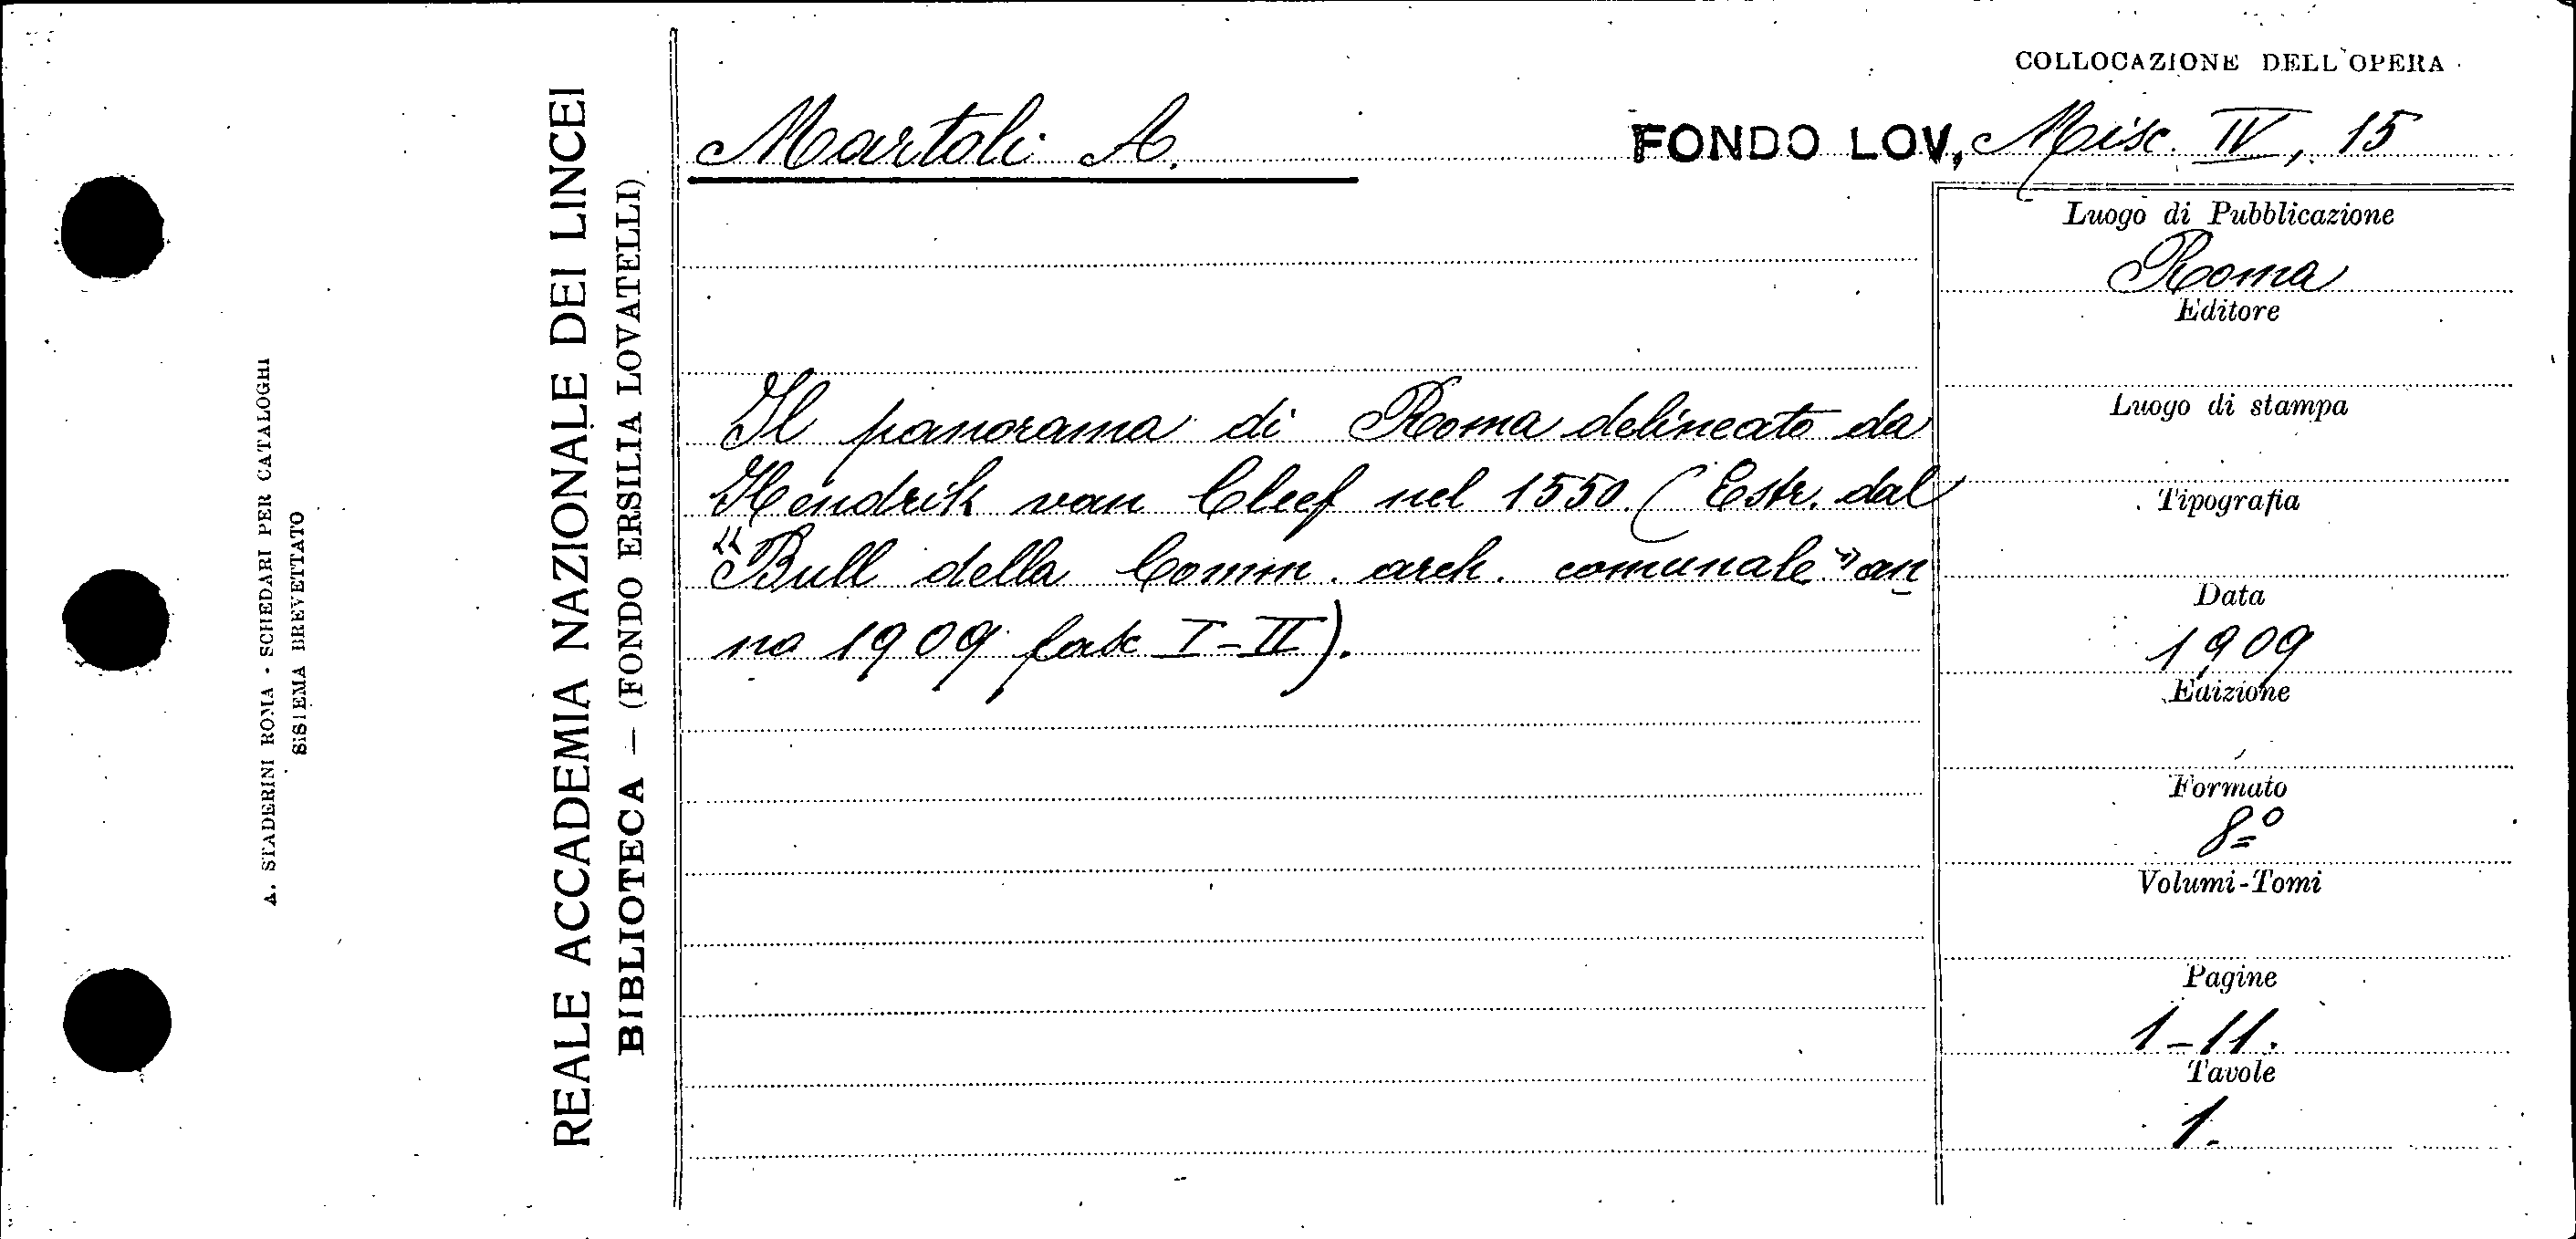 COLLOCAZIONE DELL'OPERA
Martoli A.
FONDO LOV, Misc. IV, 15
Il panorama di Roma delineato da
Hendrik van Cleef nel 1550. (Estr. dal
"Bull della Comm. arch. comunale" an
no 1909 fasc I-II).
Luogo di Pubblicazione
Roma
Editore
Luogo di stampa
Tipografia
Data
1909
Edizione
Formato
8º
Volumi-Tomi
Pagine
1-11.
Tavole
1.
REALE ACCADEMIA NAZIONALE DEI LINCEI
BIBLIOTECA — (FONDO ERSILIA LOVATELLI)
A. STADERINI ROMA - SCHEDARI PER CATALOGHI
SISTEMA BREVETTATO